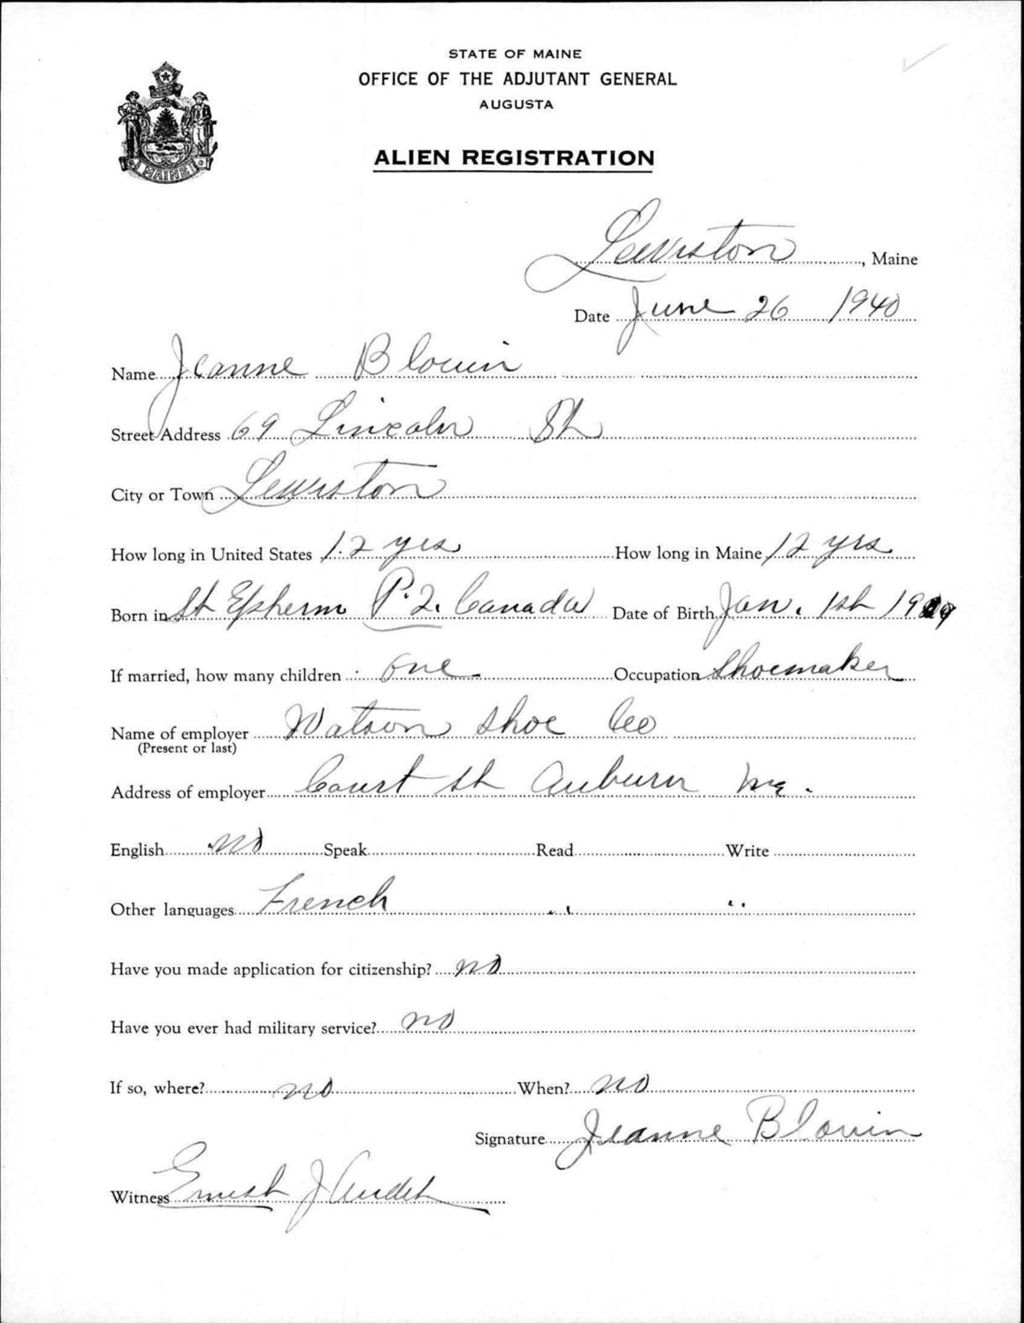 STATE OF MAINE
OFFICE OF THE ADJUTANT GENERAL
AUGUSTA
MAINE
ALIEN REGISTRATION
Lewiston, Maine
Date June 26 1940
Name Jeanne Blouin
Street Address 69 Lincoln St
City or Town Lewiston
How long in United States 12 yrs How long in Maine 12 yrs
Born in St Epherm P.Q. Canada Date of Birth Jan. 1st 19 9
If married, how many children one Occupation Shoemaker
Name of employer Watson Shoe Co
(Present or last)
Address of employer Court St Auburn Me.
English no Speak Read Write
Other languages French " "
Have you made application for citizenship? no
Have you ever had military service? no
If so, where? no When? no
Signature Jeanne Blouin
Witness Ernest J Audet